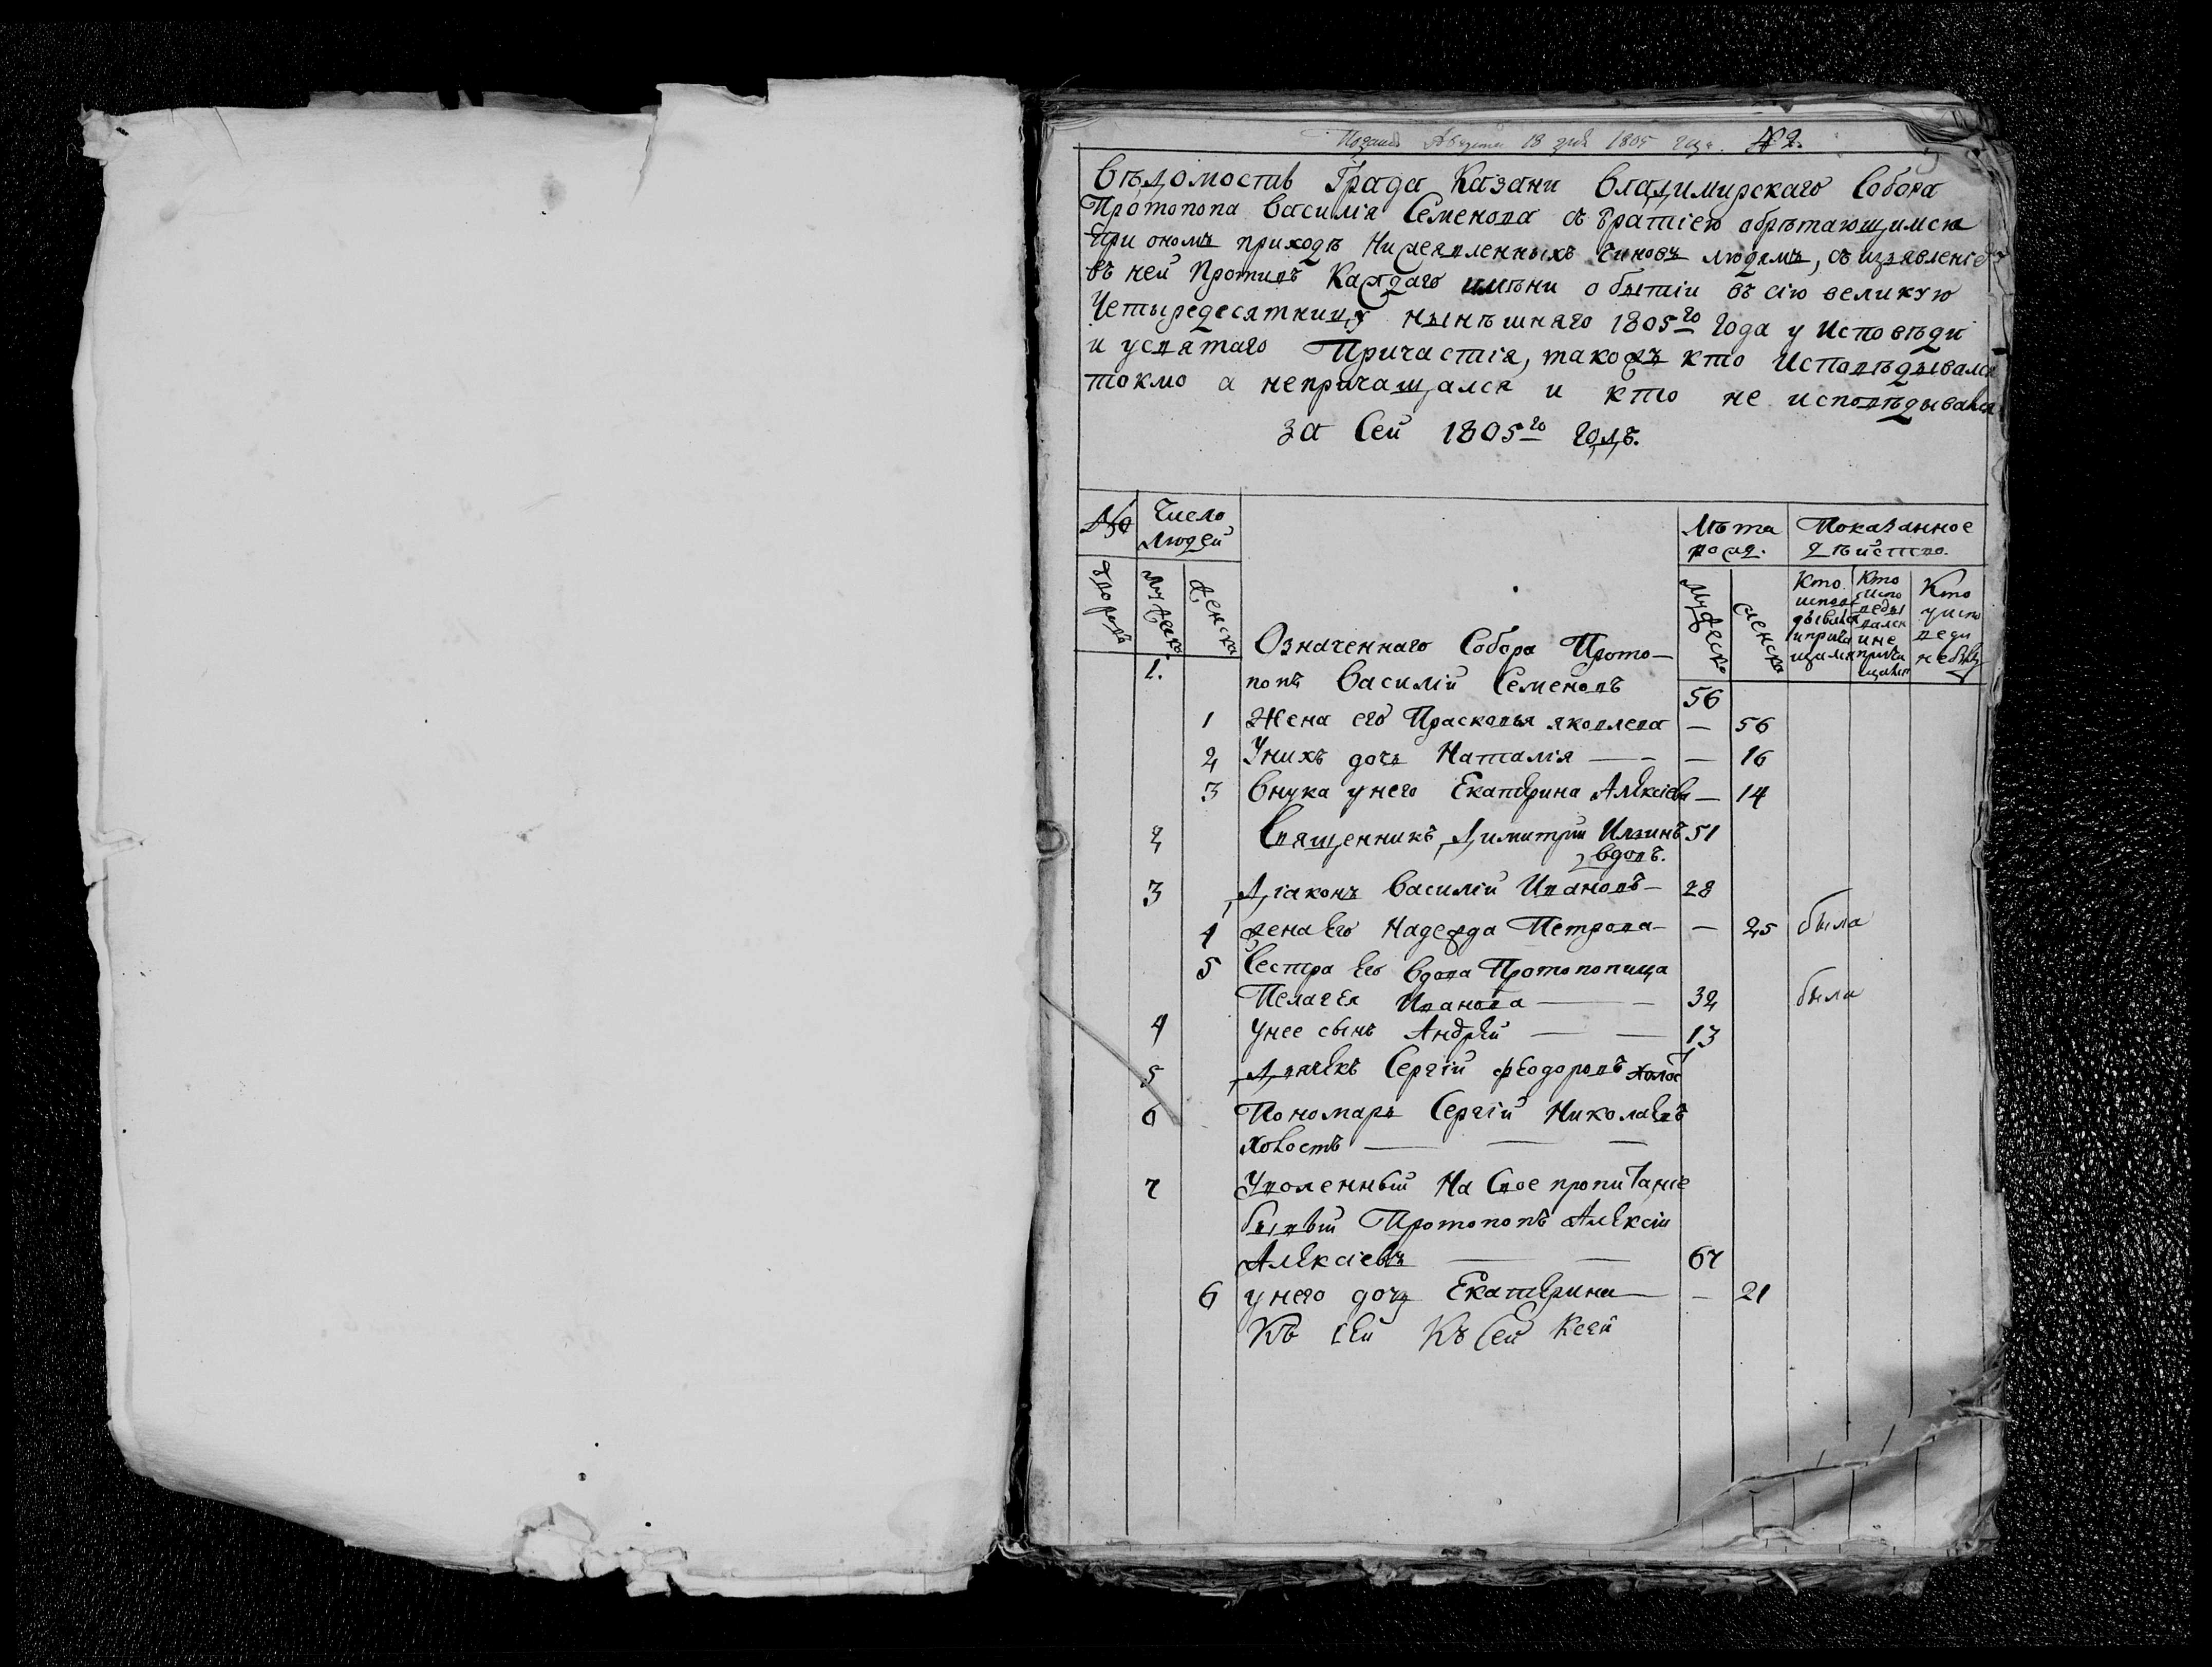 Подана Августа 18 дня 1805 года. № 2.
Вѣдомость Града Казани Владимирскаго Собора
Протопопа Василія Семенова съ братіею обрѣтающимся
при ономъ приходѣ Нижеявленныхъ чиновъ людемъ, съ изъявленіе
въ ней Противъ Каждаго имѣни о бытіи въ сію великую
Четыредесятницу нынѣшняго 1805го Года у Исповѣди
и усвятаго Причастія, такожъ кто Исповѣдывался
токмо а непричащался и кто не исповѣдывался
за Сей 1805го годъ.
№ Число людей
Лѣта рожд. Показанное дѣйство.
дворовъ мужеска женска
мужеска женска
Кто исповѣдывался и причащался
Кто исповѣдывался и не причащался
Кто у исповеди небылъ
1. Означеннаго Собора Прото-
попъ Василій Семеновъ 56
1 Жена его Прасковья яковлева — 56
2 Унихъ дочь Наталія — — — 16
3 Внука унего Екатерина Алексіева — 14
2 Священникъ Димитрий Ильинъ 51
вдовъ.
3 Діаконъ Василій Ивановъ — 28
4 жена Его Надежда Петрова — — 25 была
5 Сестра Его вдова Протопопица
Пелагея Иванова — — 32 была
4 Унее сынъ Андрей — — 13
5 Дьячекъ Сергій Феодоровъ холост
6 Пономарь Сергій Николаевъ
холостъ — — —
7 Уволенный На Свое пропитаніе
бывый Протопопъ Алексій
Алексіевъ — — 67
6 унего дочь Екатерина — — 21
Къ сей Къ Сей Ксей